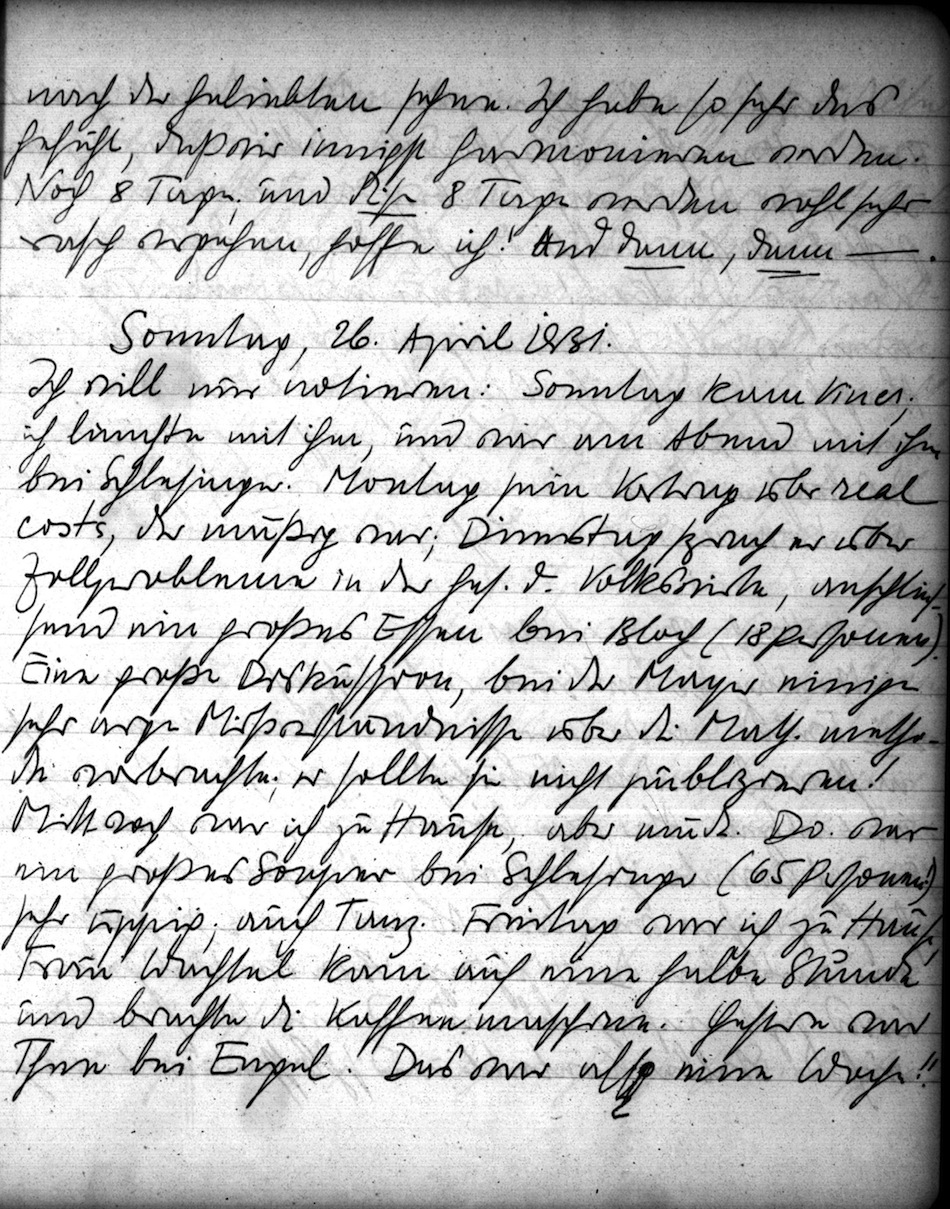 nach der Geliebten sehne. Ich habe so sehr das
Gefühl, daß wir innigst harmonieren werden.
Noch 8 Tage, und diese 8 Tage werden wohl sehr
rasch vergehen, hoffe ich! Und dann, dann —.
Sonntag, 26. April 1931.
Ich will nur notieren: Sonntag kam
ich lunchte mit ihm, und war am Abend mit ihm
bei Schlesinger. Montag sein Vortrag über real
costs, der mäßig war; Dienstag sprach er über
Zollprobleme in der Ges. d. Volkswirte, anschlies-
send ein großes Essen bei Bloch (18 Personen).
Eine große Diskussion, bei der Mayer einige
sehr arge Mißverständnisse über die Math. Metho-
de vorbrachte; er sollte sie nicht publizieren!
Mittwoch war ich zu Hause, aber müde. Do. war
ein großes Souper bei Schlesinger (65 Personen)
sehr üppig; auch Tanz. Freitag war ich zu Hause,
Frau Wachtel kam auf eine halbe Stunde
und brachte die Kaffeemaschine. Gestern war
Thee bei Engel. Das war also eine Woche!!